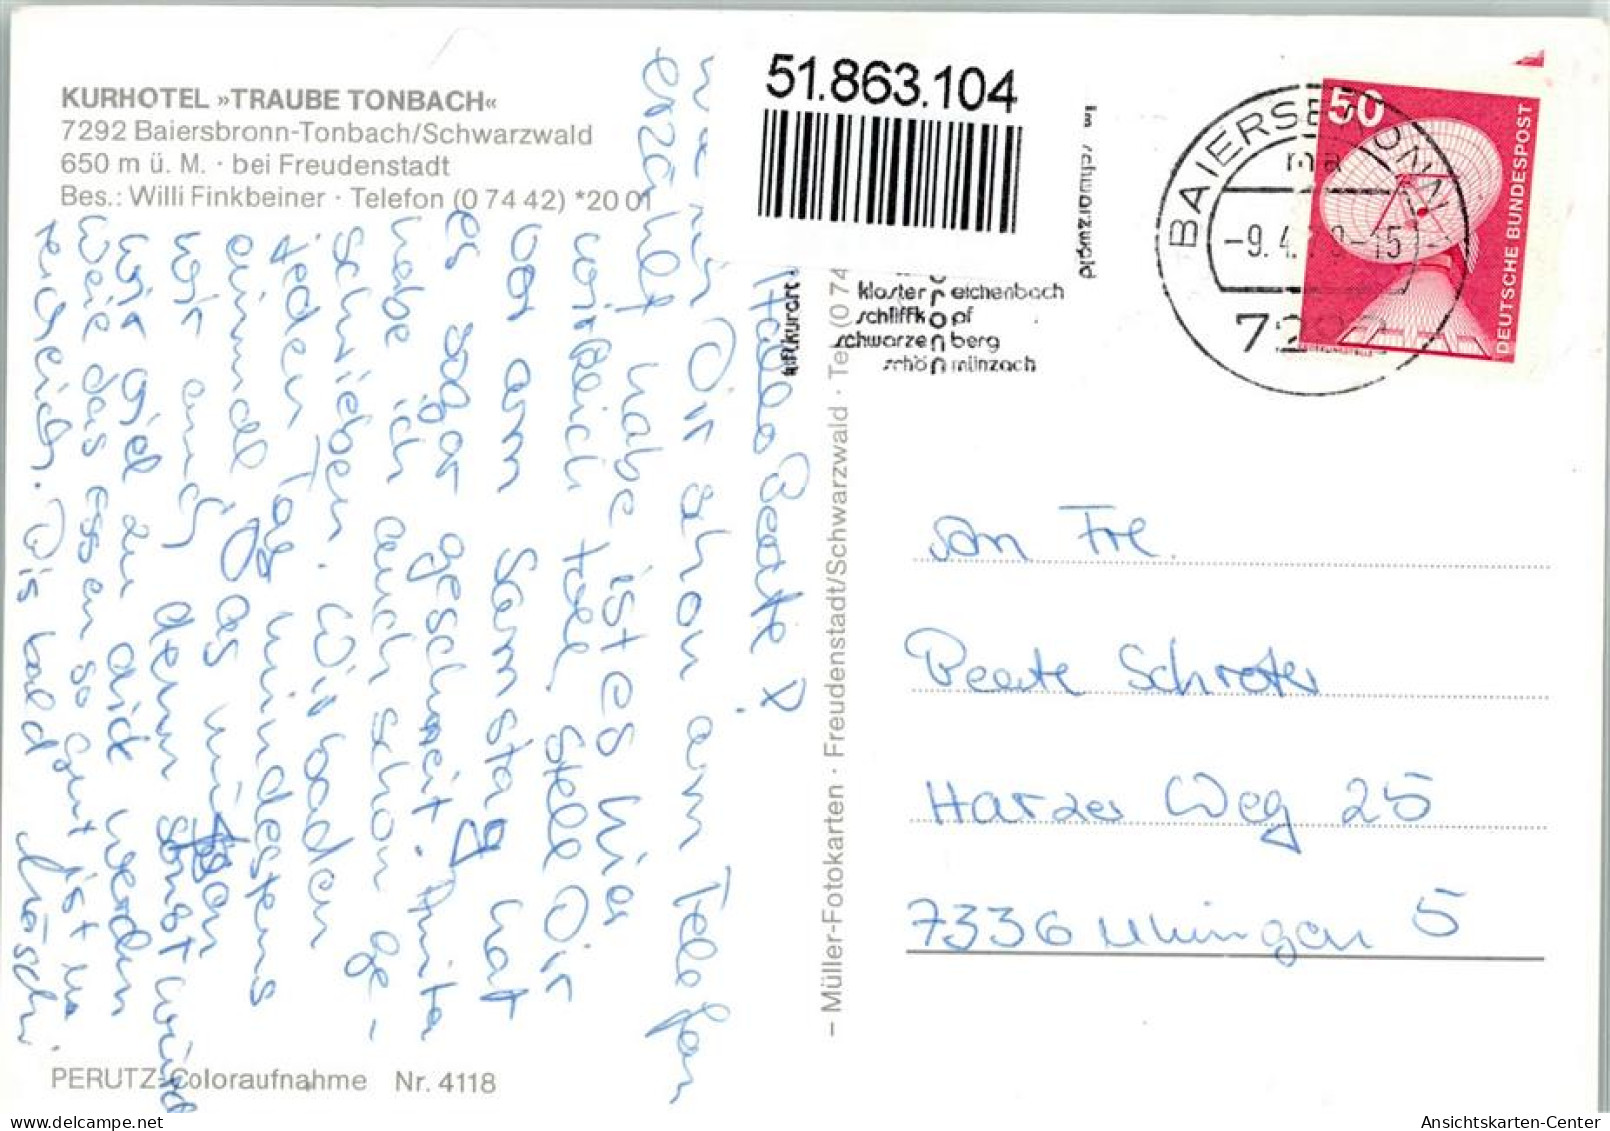 KURHOTEL »TRAUBE TONBACH«
7292 Baiersbronn-Tonbach/Schwarzwald
650 m ü. M. · bei Freudenstadt
Bes.: Willi Finkbeiner · Telefon (0 74 42) *20 01
51.863.104
Im Schwarzwald
luftkurort
kloster reichenbach
schliffkopf
schwarzenberg
schönmünzach
BAIERSBRONN
ma
-9.4. -15
7292
50
DEUTSCHE BUNDESPOST
Hallo Beate!
Wie ich Dir schon am Telefon
erzählt habe ist es hier
wirklich toll. Stell Dir
vor am Samstag hat
es sogar geschneit. Anita
habe ich auch schon ge-
schrieben. Wir baden
jeden Tag mindestens
einmal. Das müssen
wir auch denn sonst würden
wir viel zu dick werden
weil das Essen so gut ist u.
reichlich. Bis bald
An Frl.
Beate Schroter
Harzer Weg 25
7336 Uhingen 5
– Müller-Fotokarten · Freudenstadt/Schwarzwald · Tel. (0 74
PERUTZ-Coloraufnahme Nr. 4118
Ansichtskarten-Center